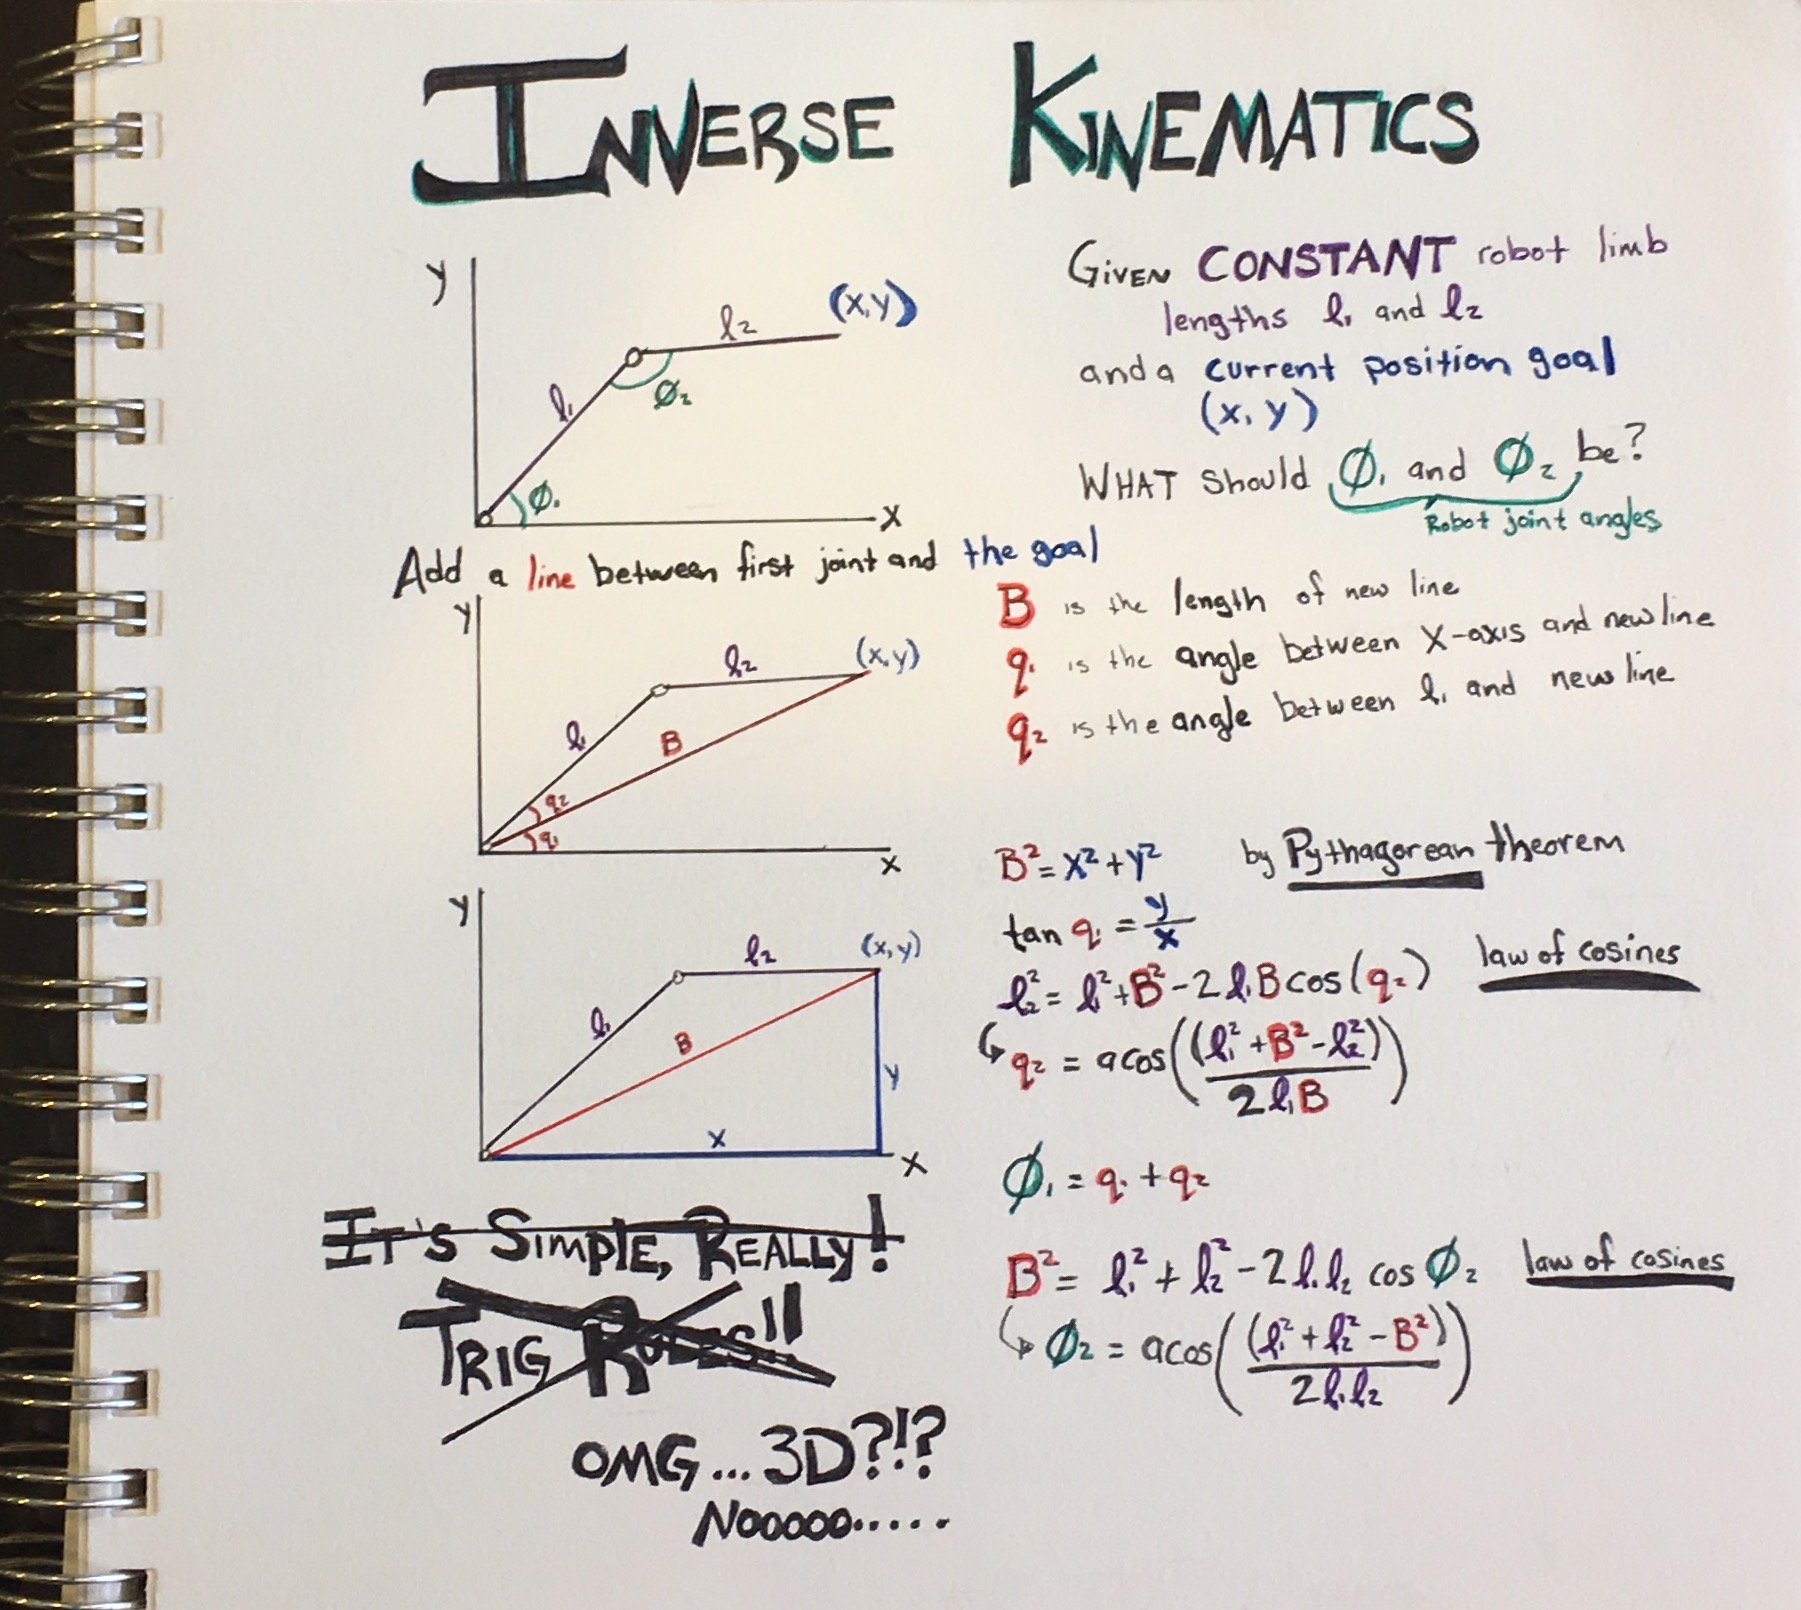 INVERSE KINEMATICS
y
l₂
(x,y)
l₁
Ø₂
Ø₁
x
GIVEN CONSTANT robot limb
lengths l₁ and l₂
and a current position goal
(x, y)
WHAT should Ø₁ and Ø₂ be?
Robot joint angles
Add a line between first joint and the goal
y
l₂
(x,y)
l₁
B
q₂
q₁
x
B is the length of new line
q₁ is the angle between X-axis and new line
q₂ is the angle between l₁ and new line
y
l₂
(x,y)
l₁
B
y
x
x
B² = x² + y² by Pythagorean theorem
tan q₁ = y/x
l₂² = l₁² + B² - 2 l₁ B cos(q₂) law of cosines
↳ q₂ = acos((l₁² + B² - l₂²)/2 l₁ B)
Ø₁ = q₁ + q₂
B² = l₁² + l₂² - 2 l₁ l₂ cos Ø₂ law of cosines
↳ Ø₂ = acos((l₁² + l₂² - B²)/2 l₁ l₂)
IT'S SIMPLE, REALLY!
TRIG RULES!!
OMG... 3D?!?
NOOOOO.....